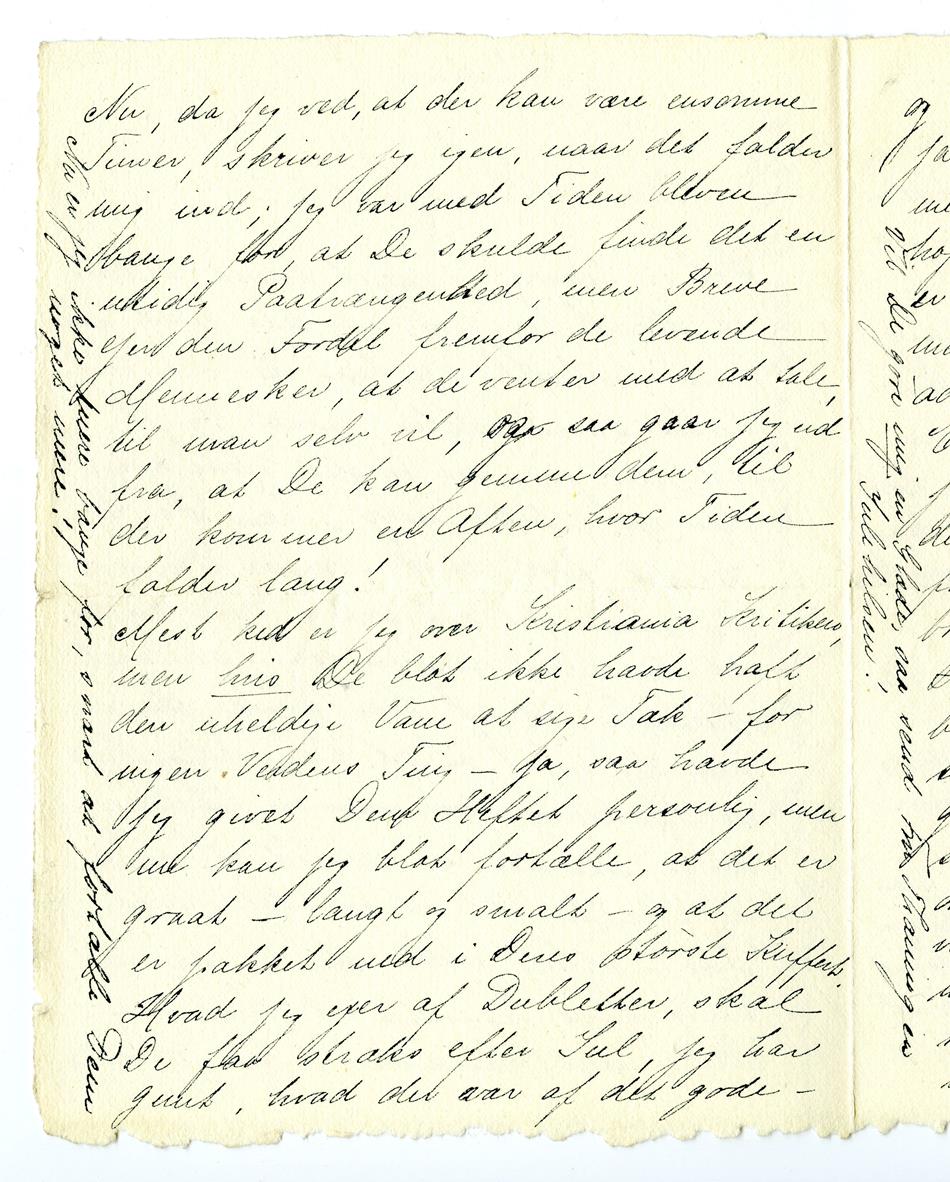 Nu, da jeg ved, at der kan være ensomme
Timer, skriver jeg igen, naar det falder
mig ind; jeg var med Tiden bleven
bange for, at De skulde finde det en
utidig Paatrængenhed, men Breve
ejer den Fordel fremfor de levende
Mennesker, at de venter med at tale,
til man selv vil, og saa gaar jeg ud
fra, at De kan gemme dem, til
der kommer en Aften, hvor Tiden
falder lang!
Mest ked er jeg over Kristiania Kritiken,
men hvis De blot ikke havde haft
den uheldige Vane at sige Tak – for
ingen Verdens Ting – ja, saa havde
jeg givet Dem Heftet personlig, men
nu kan jeg blot fortælle, at det er
graat – langt og smalt – og at det
er pakket ned i Deres største Kuffert.
Hvad jeg ejer af Dubletter, skal
De faa straks efter Jul, jeg har
gemt, hvad der var af det gode –
Nu er jeg ikke mere bange for, snart at fortælle Dem
noget mere!
Vil De gøre mig en Glæde, saa send Frk Thaning en
Julehilsen!
og